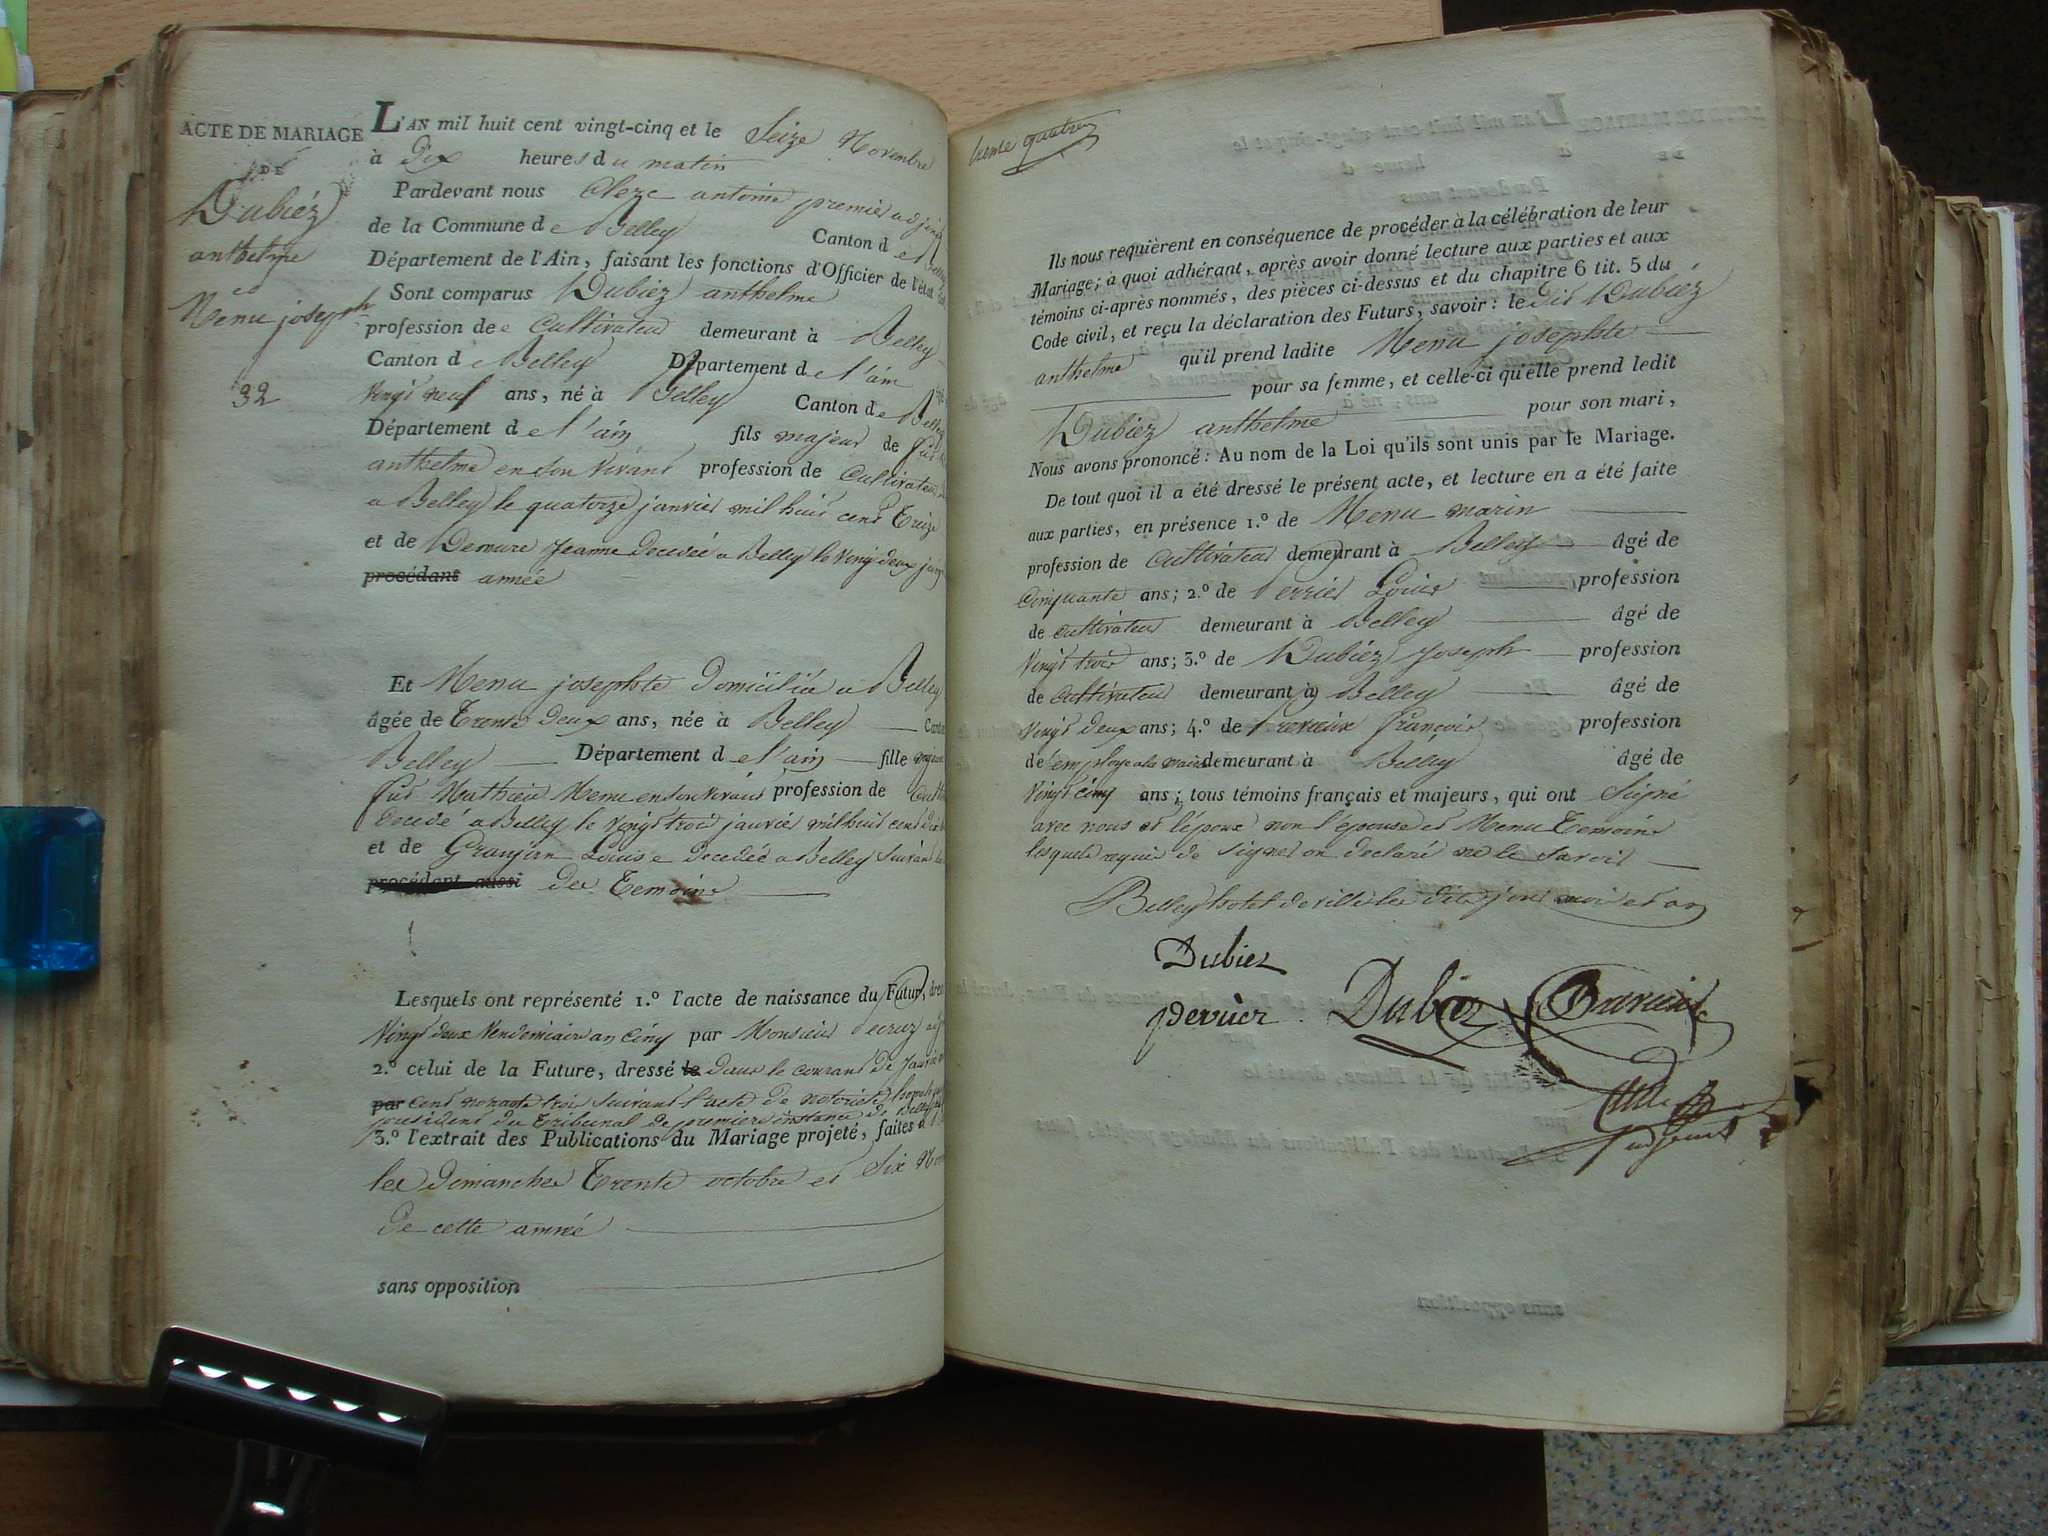 ACTE DE MARIAGE
DE
Dubiéz
anthelme
&
Menu josephte
32
L'AN mil huit cent vingt-cinq et le Seize Novembre
à Dix heures du matin
Pardevant nous antoine premier adjoint
de la Commune de Belley Canton de
Département de l'Ain, faisant les fonctions d'Officier de l'état
Sont comparus Dubiéz anthelme
profession de Cultivateur demeurant à Belley
Canton de Belley Département de l'ain
Vingt neuf ans, né à Belley Canton de Belley
Département de l'ain fils majeur de feu
anthelme en son vivant profession de Cultivateur
a Belley le quatorze janvier mil huit cent Treize
et de Demure Jeanne Decedeé a Belley le Vingt deux juin
procédant année
Et Menu josephte Domiciliée a Belley
âgée de Trente Deux ans, née à Belley
Belley Département de l'ain fille majeure
feu Mathieu Menu en son vivant profession de
Decedé a Belley le Vingt trois janvier mil huit cent
et de Granjean Louise Decedée a Belley Suivant
procédant aussi des Temoins
Lesquels ont représenté 1.º l'acte de naissance du Futur,
Vingt deux Vendemiaire an Cinq par Monsieur
2.º celui de la Future, dressé le dans le courant de
par Cent nonante trois Suivant l'acte de notoriété
president du Tribunal de premiere instance de Belley
3.º l'extrait des Publications du Mariage projeté, faites
les Dimanches Trente octobre et Six
de cette anneé
sans opposition
trente quatre
Ils nous requièrent en conséquence de procéder à la célébration de leur
Mariage; à quoi adhérant, après avoir donné lecture aux parties et aux
témoins ci-après nommés, des pièces ci-dessus et du chapitre 6 tit. 5 du
Code civil, et reçu la déclaration des Futurs, savoir: le dit Dubiéz
anthelme qu'il prend ladite Menu josephte
pour sa femme, et celle-ci qu'elle prend ledit
Dubiez anthelme pour son mari,
Nous avons prononcé: Au nom de la Loi qu'ils sont unis par le Mariage.
De tout quoi il a été dressé le présent acte, et lecture en a été faite
aux parties, en présence 1.º de Menu marin
profession de Cultivateur demeurant à Belley âgé de
Cinquante ans; 2.º de Perrier Louis profession
de Cultivateur demeurant à Belley âgé de
Vingt trois ans; 3.º de Dubiez Joseph profession
de Cultivateur demeurant à Belley âgé de
Vingt Deux ans; 4.º de françois profession
de employé a la mairie demeurant à Belley âgé de
Vingt cinq ans; tous témoins français et majeurs, qui ont Signé
avec nous et l'époux non l'epouse et Menu Temoins
lesquels requis de Signer on declaré ne le Savoir
Belley hotel de ville les dits jour mois et an
Dubiez
perrier Dubiez
adjoint